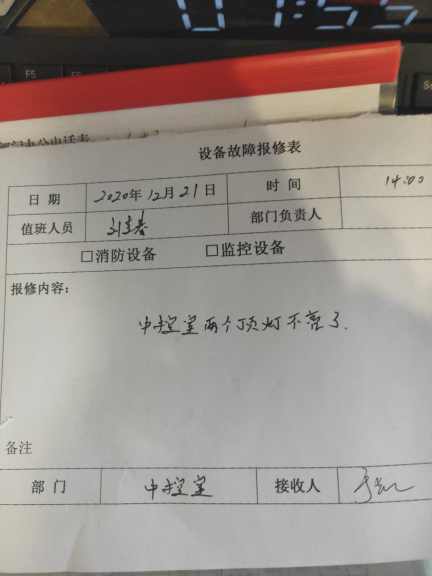 01:55
F5
F6
设备故障报修表
日期 2020年12月21日 时间 14:00
值班人员 部门负责人
□消防设备 □监控设备
报修内容:
中控室两个顶灯不亮了.
备注
部门 中控室 接收人